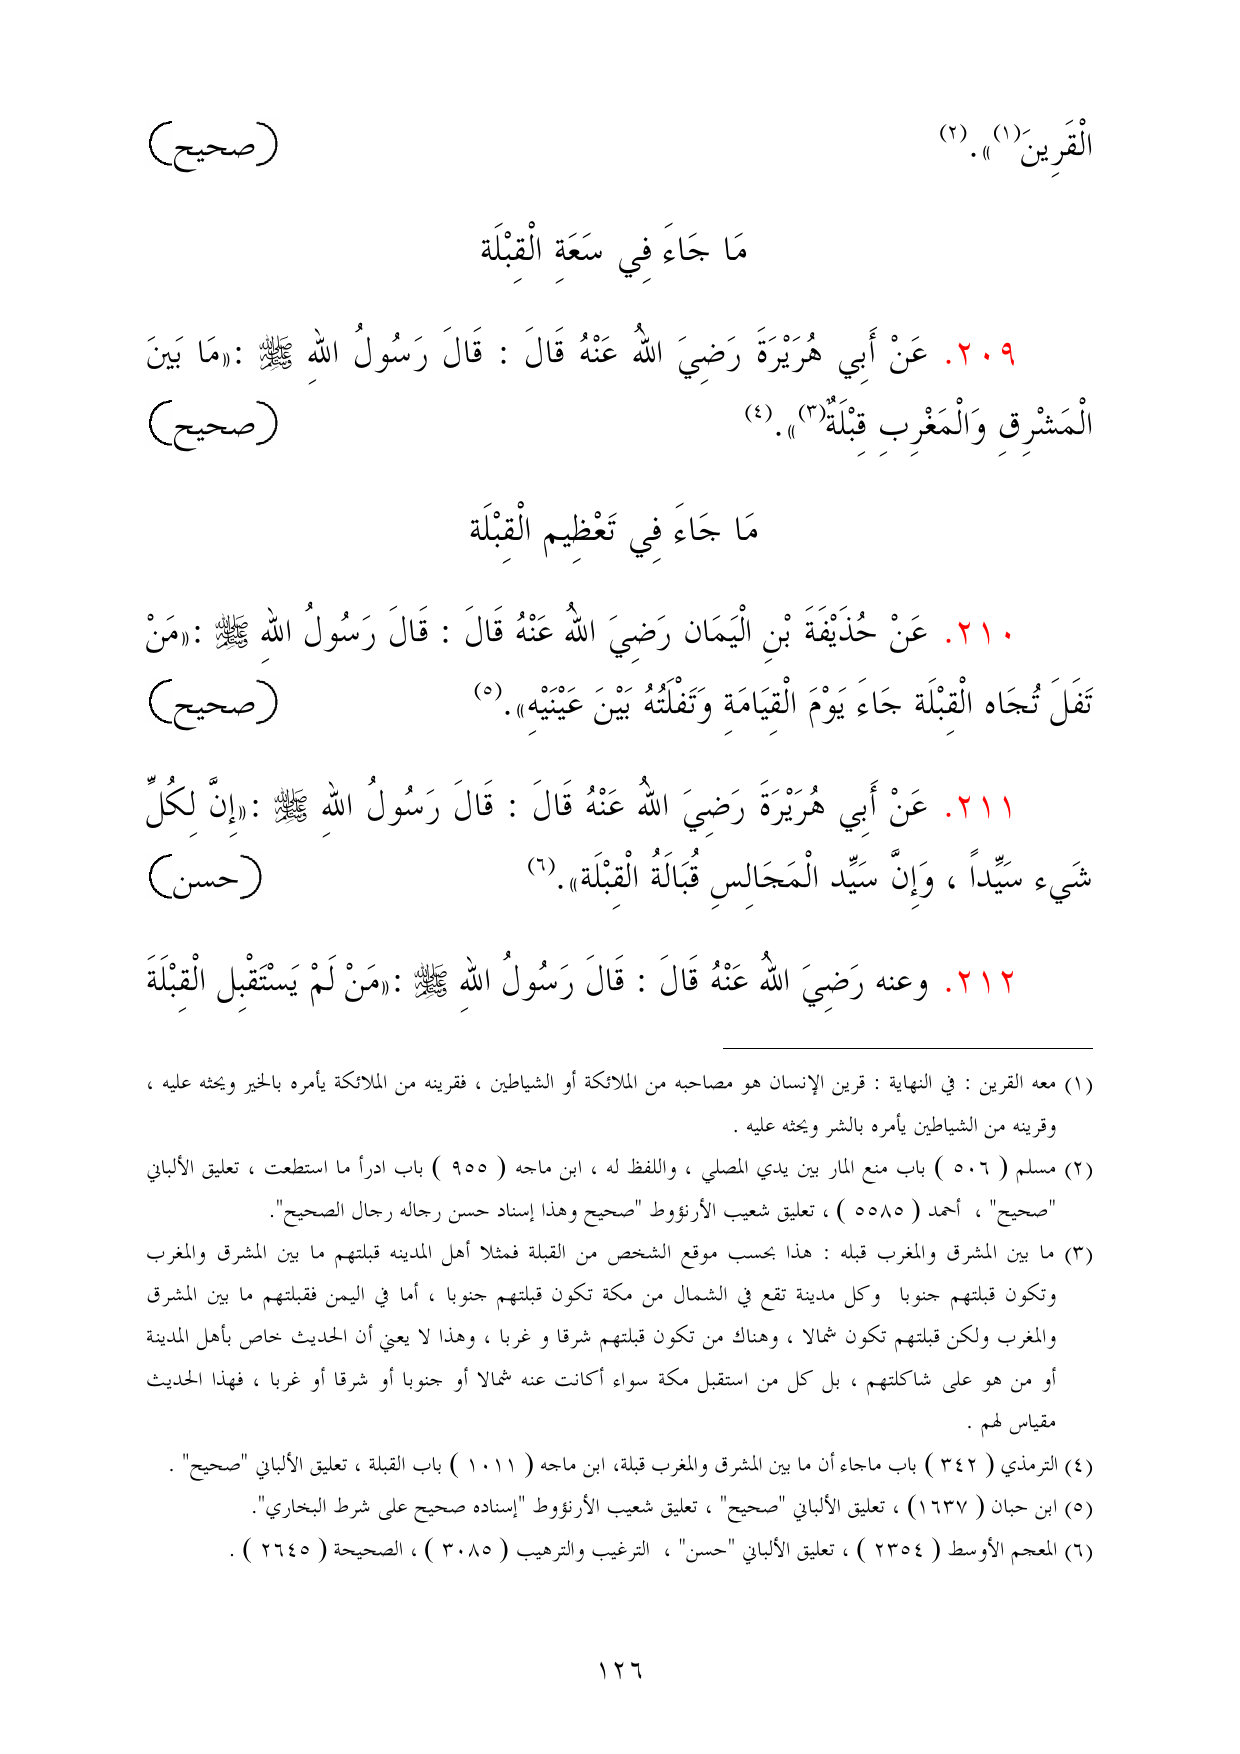 الْقَرِينَ(١)».(٢) (صحيح)
مَا جَاءَ فِي سَعَةِ الْقِبْلَة
٢٠٩. عَنْ أَبِي هُرَيْرَةَ رَضِيَ اللهُ عَنْهُ قَالَ : قَالَ رَسُولُ اللهِ ﷺ :«مَا بَينَ
الْمَشْرِقِ وَالْمَغْرِبِ قِبْلَةٌ(٣)».(٤) (صحيح)
مَا جَاءَ فِي تَعْظِيمِ الْقِبْلَة
٢١٠. عَنْ حُذَيْفَةَ بْنِ الْيَمَان رَضِيَ اللهُ عَنْهُ قَالَ : قَالَ رَسُولُ اللهِ ﷺ :«مَنْ
تَفَلَ تُجَاه الْقِبْلَة جَاءَ يَوْمَ الْقِيَامَةِ وَتَفْلَتُهُ بَيْنَ عَيْنَيْهِ».(٥) (صحيح)
٢١١. عَنْ أَبِي هُرَيْرَةَ رَضِيَ اللهُ عَنْهُ قَالَ : قَالَ رَسُولُ اللهِ ﷺ :«إِنَّ لِكُلِّ
شَيء سَيِّداً ، وَإِنَّ سَيِّد الْمَجَالِسِ قُبَالَةُ الْقِبْلَة».(٦) (حسن)
٢١٢. وعنه رَضِيَ اللهُ عَنْهُ قَالَ : قَالَ رَسُولُ اللهِ ﷺ :«مَنْ لَمْ يَسْتَقْبِل الْقِبْلَةَ
(١) معه القرين : في النهاية : قرين الإنسان هو مصاحبه من الملائكة أو الشياطين ، فقرينه من الملائكة يأمره بالخير ويحثه عليه ،
وقرينه من الشياطين يأمره بالشر ويحثه عليه .
(٢) مسلم ( ٥٠٦ ) باب منع المار بين يدي المصلي ، واللفظ له ، ابن ماجه ( ٩٥٥ ) باب ادرأ ما استطعت ، تعليق الألباني
"صحيح" ، أحمد ( ٥٥٨٥ ) ، تعليق شعيب الأرنؤوط "صحيح وهذا إسناد حسن رجاله رجال الصحيح".
(٣) ما بين المشرق والمغرب قبله : هذا بحسب موقع الشخص من القبلة فمثلا أهل المدينه قبلتهم ما بين المشرق والمغرب
وتكون قبلتهم جنوبا وكل مدينة تقع في الشمال من مكة تكون قبلتهم جنوبا ، أما في اليمن فقبلتهم ما بين المشرق
والمغرب ولكن قبلتهم تكون شمالا ، وهناك من تكون قبلتهم شرقا و غربا ، وهذا لا يعني أن الحديث خاص بأهل المدينة
أو من هو على شاكلتهم ، بل كل من استقبل مكة سواء أكانت عنه شمالا أو جنوبا أو شرقا أو غربا ، فهذا الحديث
مقياس لهم .
(٤) الترمذي ( ٣٤٢ ) باب ماجاء أن ما بين المشرق والمغرب قبلة، ابن ماجه ( ١٠١١ ) باب القبلة ، تعليق الألباني "صحيح" .
(٥) ابن حبان ( ١٦٣٧) ، تعليق الألباني "صحيح" ، تعليق شعيب الأرنؤوط "إسناده صحيح على شرط البخاري".
(٦) المعجم الأوسط ( ٢٣٥٤ ) ، تعليق الألباني "حسن" ، الترغيب والترهيب ( ٣٠٨٥ ) ، الصحيحة ( ٢٦٤٥ ) .
١٢٦